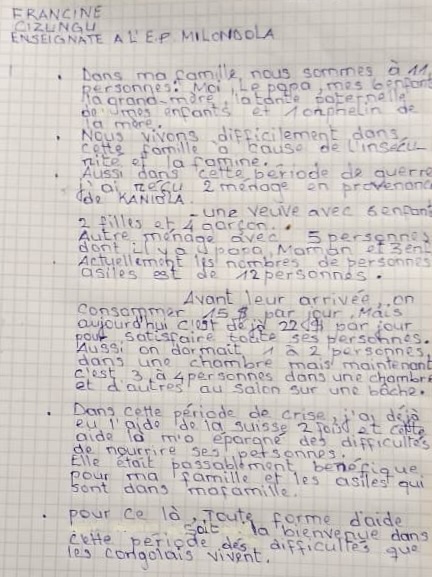 FRANCINE
CIZUNGU
ENSEIGNATE A L'E.P. MILONDOLA
. Dans ma famille, nous sommes à 11
personnes: Moi, Le papa, mes 6 enfant
la grand-mère, la tante paternelle
de mes enfants et 1 orphelin de
la mère.
. Nous vivons difficilement dans
cette famille à cause de l'insécu-
rité et la famine.
. Aussi dans cette période de guerre
j'ai reçu 2 ménage en provenanc
de KANIOLA
- une veuve avec 6 enfant
2 filles et 4 garçon.
. Autre ménage avec 5 personnes
dont il y a 1 papa, Maman et 3 enf
. Actuellement les nombres de personnes
asiles est de 12 personnes.
Avant leur arrivée, on
consommer 15$ par jour, Mais
aujourd'hui c'est déjà 22$ par jour
pour satisfaire toute ses personnes.
Aussi on dormait 1 à 2 personnes,
dans une chambre mais maintenant
c'est 3 à 4 personnes dans une chambre
et d'autres au salon sur une bâche.
. Dans cette période de crise, j'ai déjà
eu l'aide de la suisse 2 fois et cette
aide là m'a épargné des difficultés
de nourrire ses personnes.
Elle était passablement bénéfique
pour ma famille et les asiles qui
sont dans ma famille.
. pour ce là, Toute forme d'aide
soit la bienvenue dans
cette période des difficultés que
les congolais vivent.